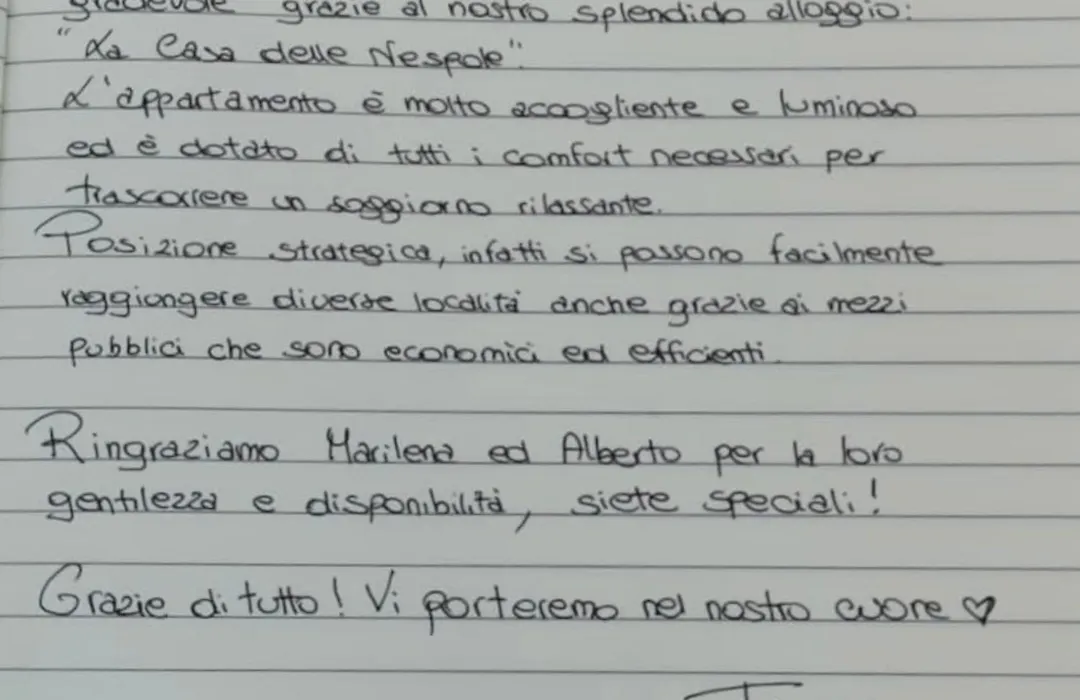 gradevole grazie al nostro splendido alloggio:
"La Casa delle Nespole".
L'appartamento è molto accogliente e luminoso
ed è dotato di tutti i comfort necessari per
trascorrere un soggiorno rilassante.
Posizione strategica, infatti si possono facilmente
raggiungere diverse località anche grazie ai mezzi
pubblici che sono economici ed efficienti.
Ringraziamo Marilena ed Alberto per la loro
gentilezza e disponibilità, siete speciali!
Grazie di tutto! Vi porteremo nel nostro cuore ♡